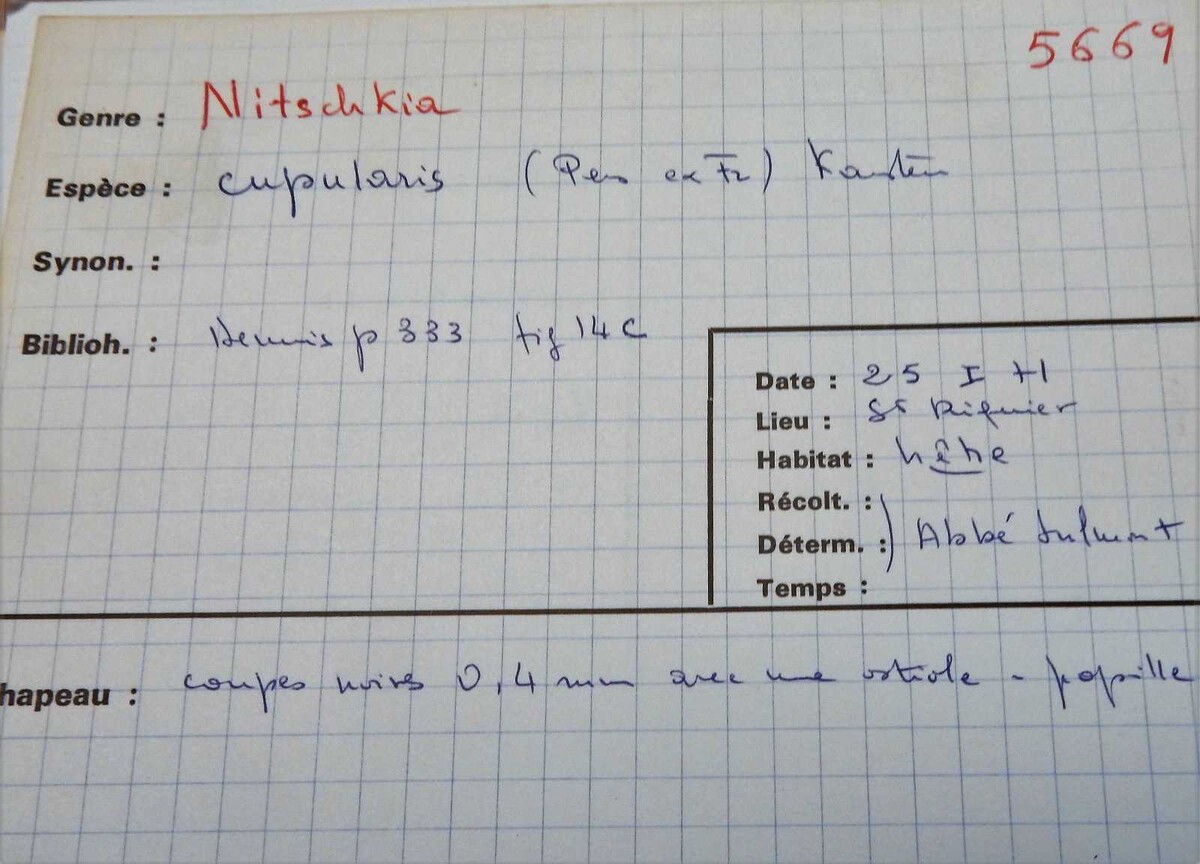 5669
Genre : Nitschkia
Espèce : cupularis (Pers ex Fr) Karsten
Synon. :
Biblioh. : Dennis p 333 fig 14 C
Date : 25 I 71
Lieu : St Riquier
Habitat : hêhe
Récolt. :
Déterm. : Abbé
Temps :
hapeau : coupes noires 0,4 mm avec une ostiole - papille